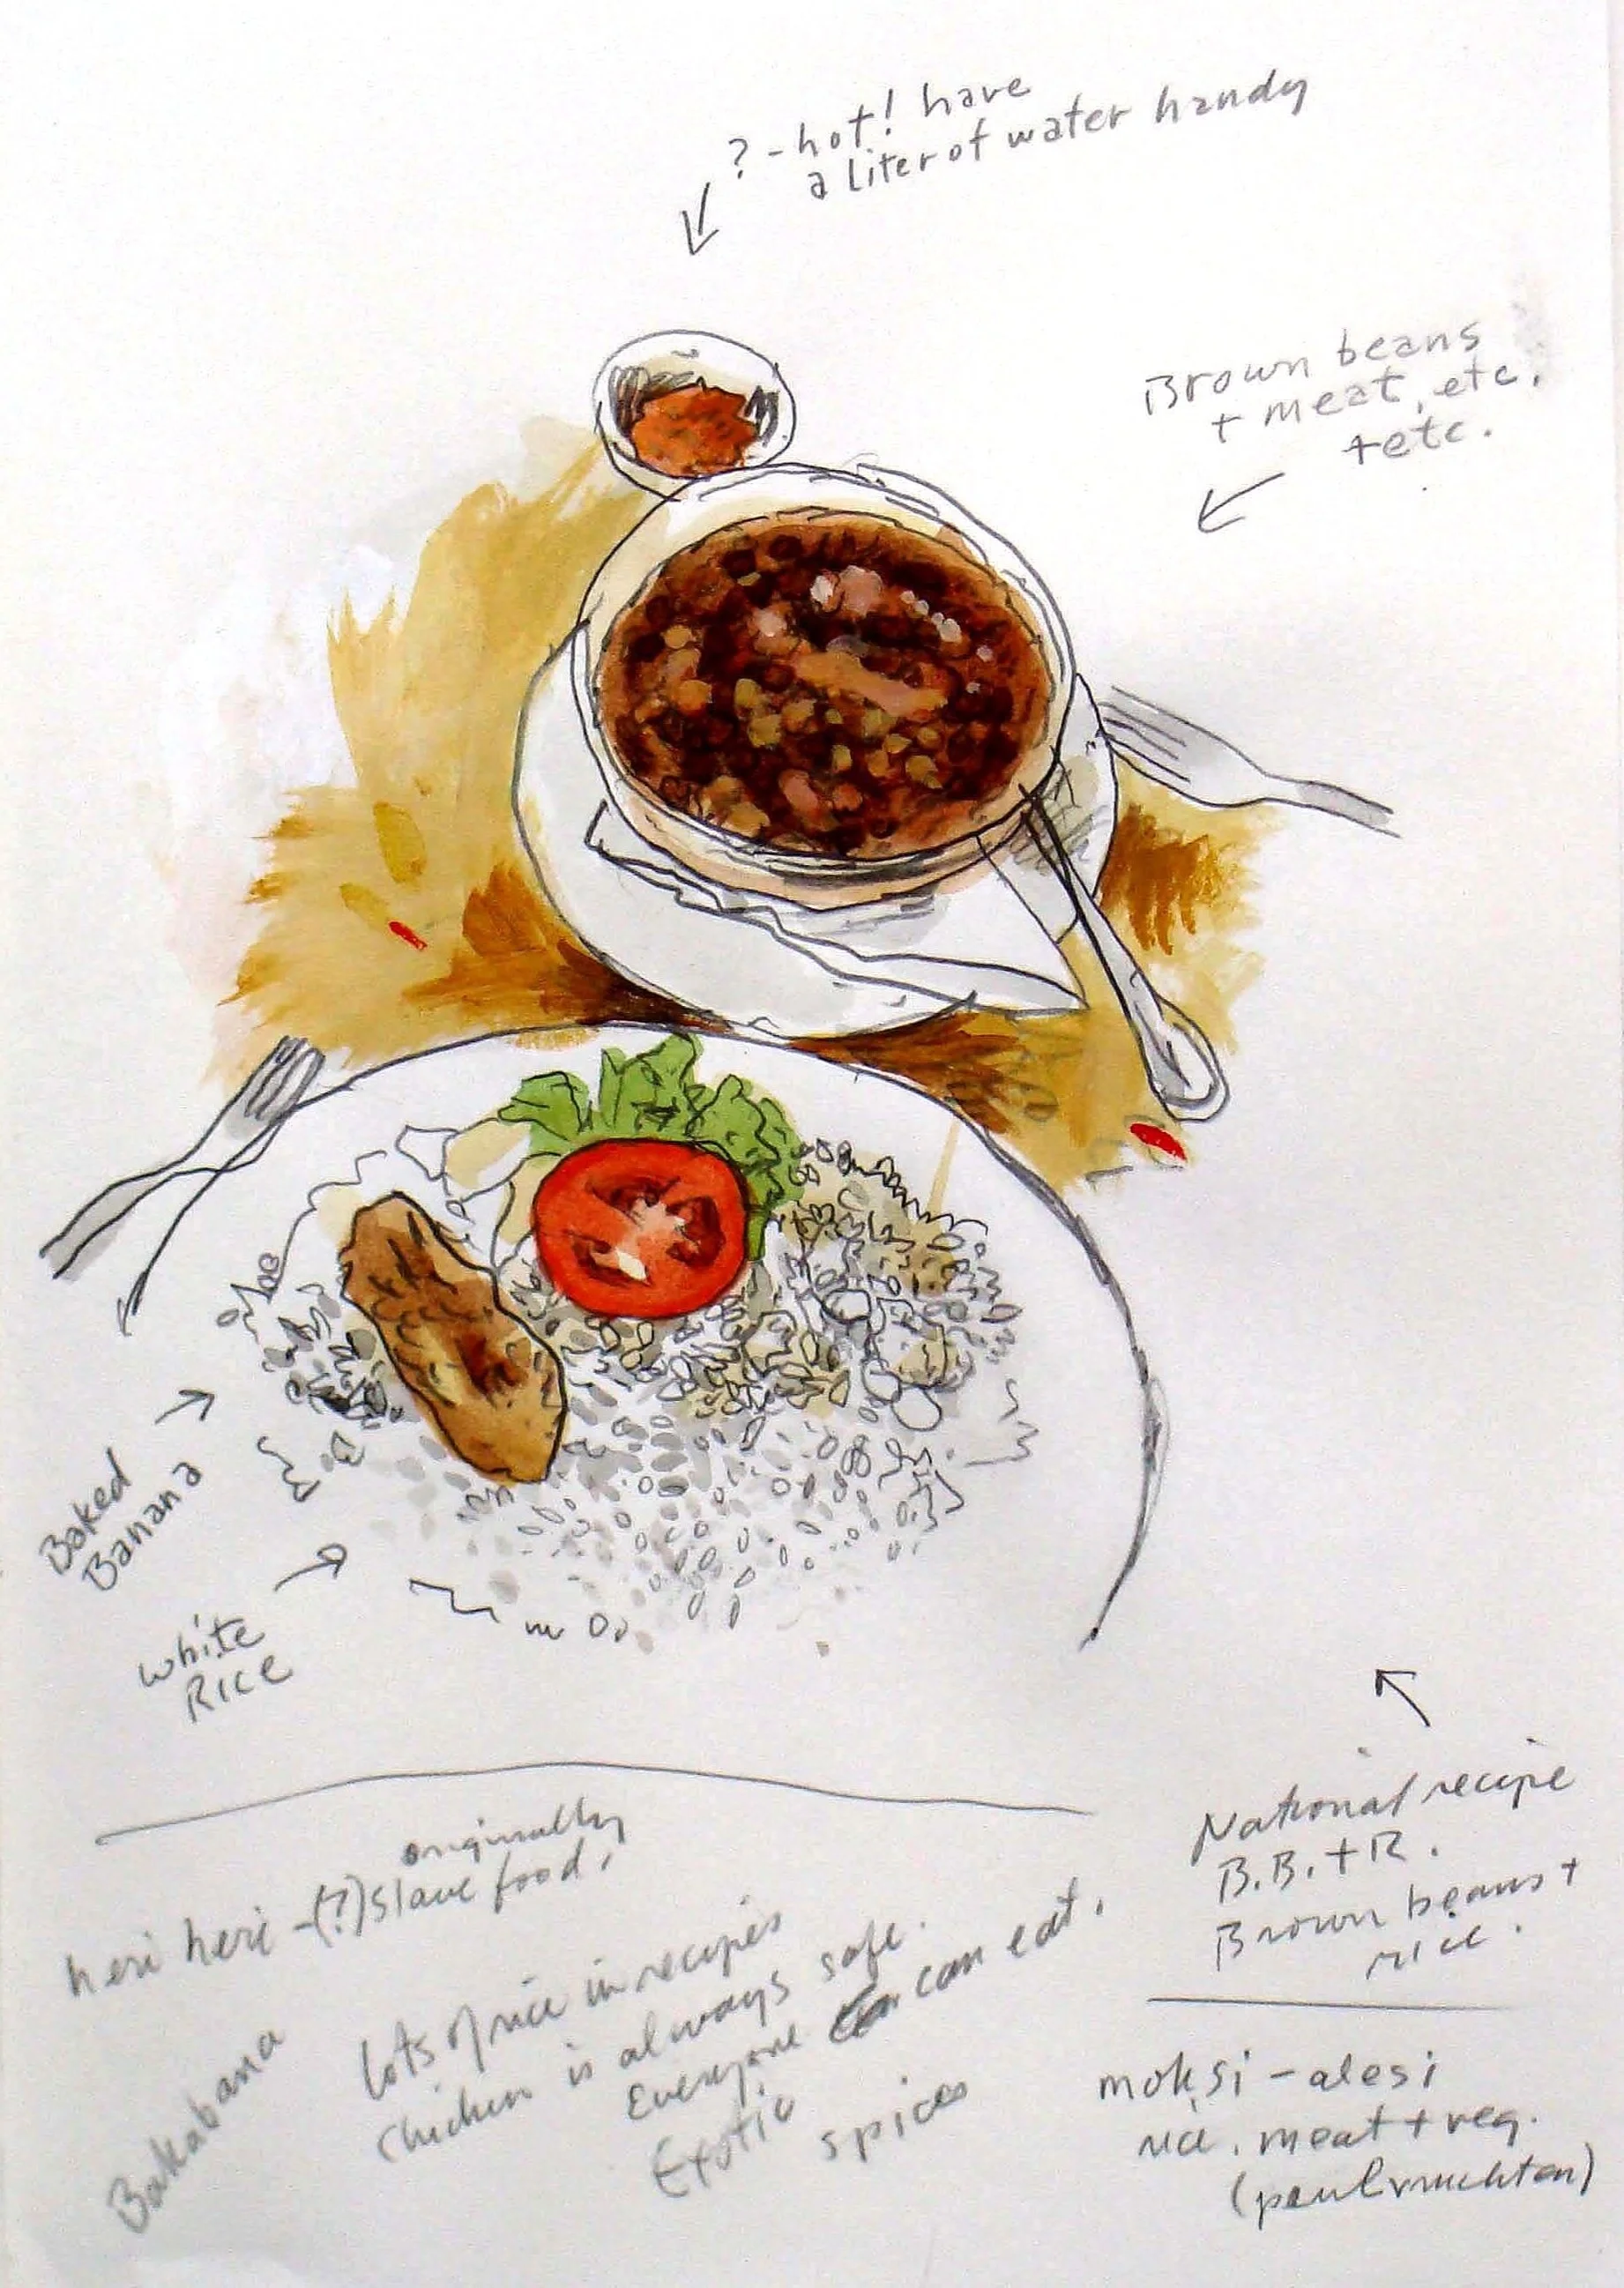 ? - hot! have
a liter of water handy
Brown beans
+ meat, etc.
+etc.
Baked
Banana
White
Rice
National recipe
B.B. + R.
Brown beans +
rice.
originally
heri heri - (?) Slave food.
lots of rice in recipes
Chicken is always safe.
Everyone can eat.
Exotic spices
Bakabana
moksi - alesi
rice, meat + veg.